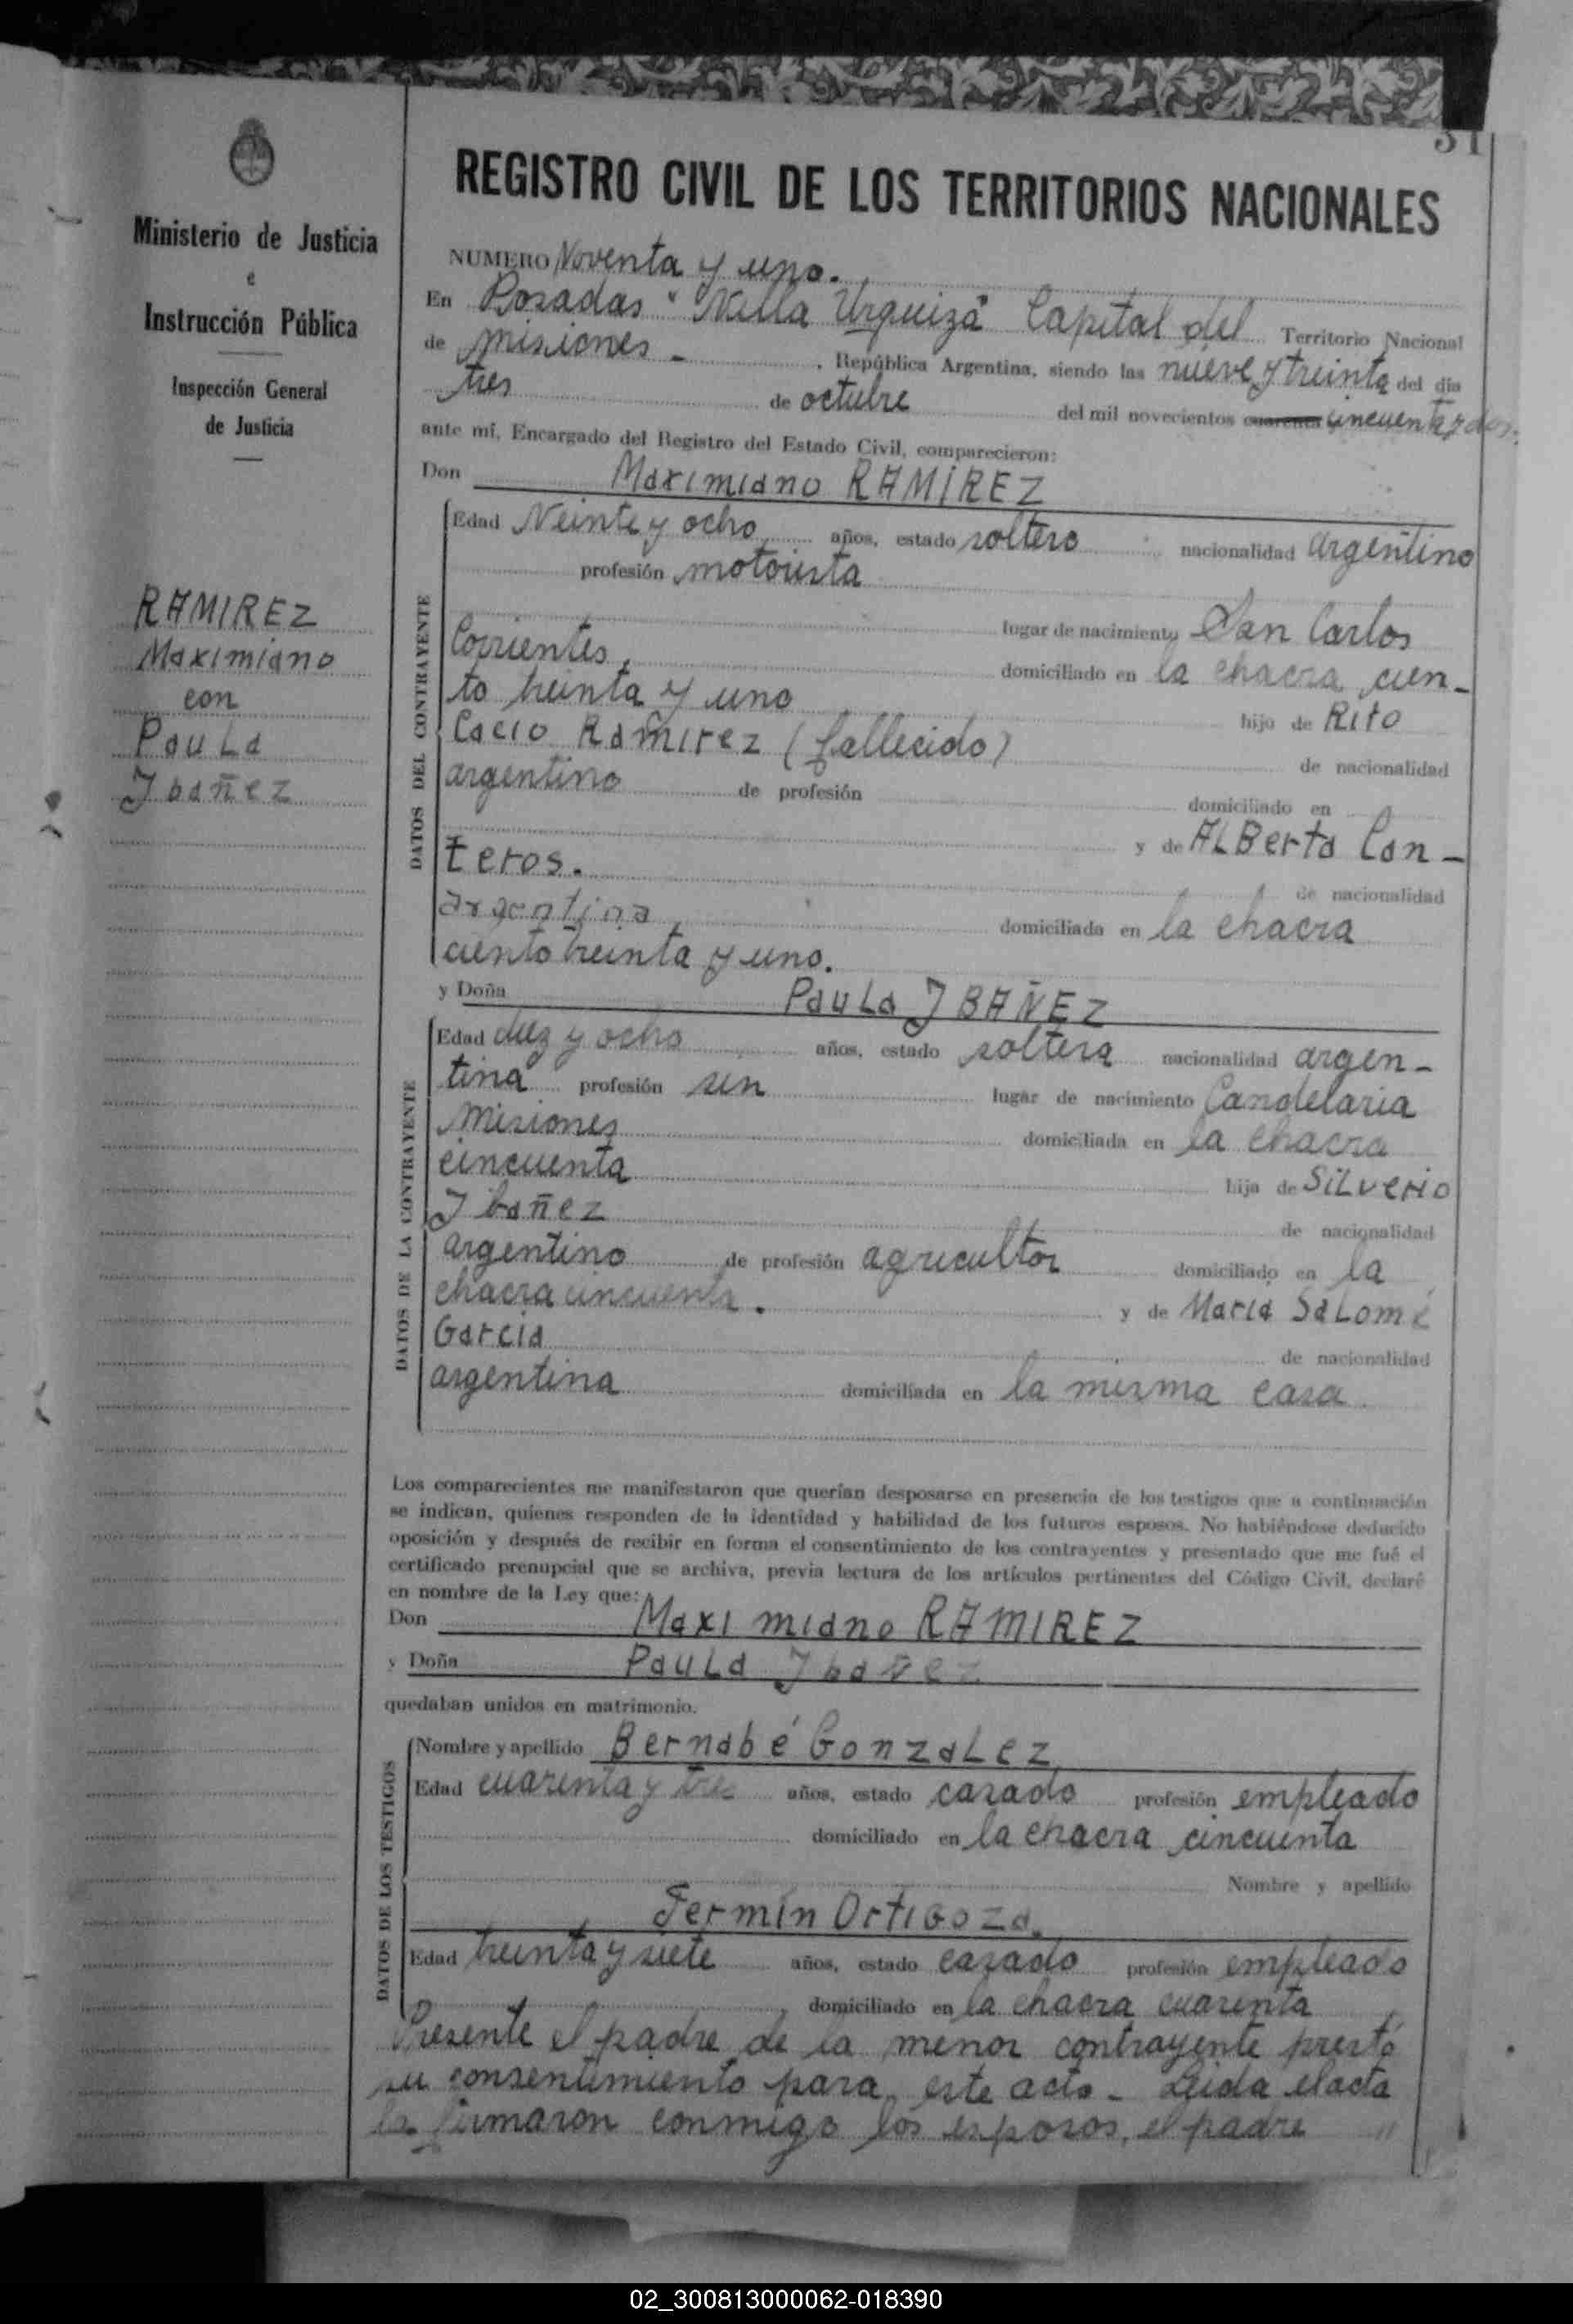 31
Ministerio de Justicia
e
Instrucción Pública
Inspección General
de Justicia
RAMIREZ
Maximiano
con
Paula
Ibañez
REGISTRO CIVIL DE LOS TERRITORIOS NACIONALES
NUMERO Noventa y uno.
En Posadas "Villa Urquiza" Capital del Territorio Nacional
de Misiones - , República Argentina, siendo las nueve y treinta del día
tres de octubre del mil novecientos cuarenta cincuenta y dos.
ante mí, Encargado del Registro del Estado Civil, comparecieron:
Don Maximiano RAMIREZ
DATOS DEL CONTRAYENTE
Edad Veinte y ocho años, estado soltero nacionalidad argentino
profesión motorista
lugar de nacimiento San Carlos
Corrientes, domiciliado en la chacra cien-
to treinta y uno hijo de Rito
Cacio Ramirez (fallecido) de nacionalidad
argentino de profesión domiciliado en
y de ALBerta Can-
teros. de nacionalidad
argentina domiciliada en la chacra
ciento treinta y uno.
y Doña Paula IBAÑEZ
DATOS DE LA CONTRAYENTE
Edad diez y ocho años, estado soltera nacionalidad argen-
tina profesión sin lugar de nacimiento Candelaria
Misiones domiciliada en la chacra
cincuenta hija de Silverio
Ibañez de nacionalidad
argentino de profesión agricultor domiciliado en la
chacra cincuenta. y de Maria Salomé
Garcia de nacionalidad
argentina domiciliada en la misma casa
Los comparecientes me manifestaron que querían desposarse en presencia de los testigos que a continuación
se indican, quienes responden de la identidad y habilidad de los futuros esposos. No habiéndose deducido
oposición y después de recibir en forma el consentimiento de los contrayentes y presentado que me fué el
certificado prenupcial que se archiva, previa lectura de los artículos pertinentes del Código Civil, declaré
en nombre de la Ley que:
Don Maximiano RAMIREZ
y Doña Paula Ibañez
quedaban unidos en matrimonio.
DATOS DE LOS TESTIGOS
Nombre y apellido Bernabé Gonzalez
Edad cuarenta y tres años, estado casado profesión empleado
domiciliado en la chacra cincuenta
Nombre y apellido
Fermín Ortigoza.
Edad treinta y siete años, estado casado profesión empleado
domiciliado en la chacra cuarenta
Presente el padre de la menor contrayente prestó
su consentimiento para este acto - Leida el acta
la firmaron conmigo los esposos, el padre "
02_300813000062-018390